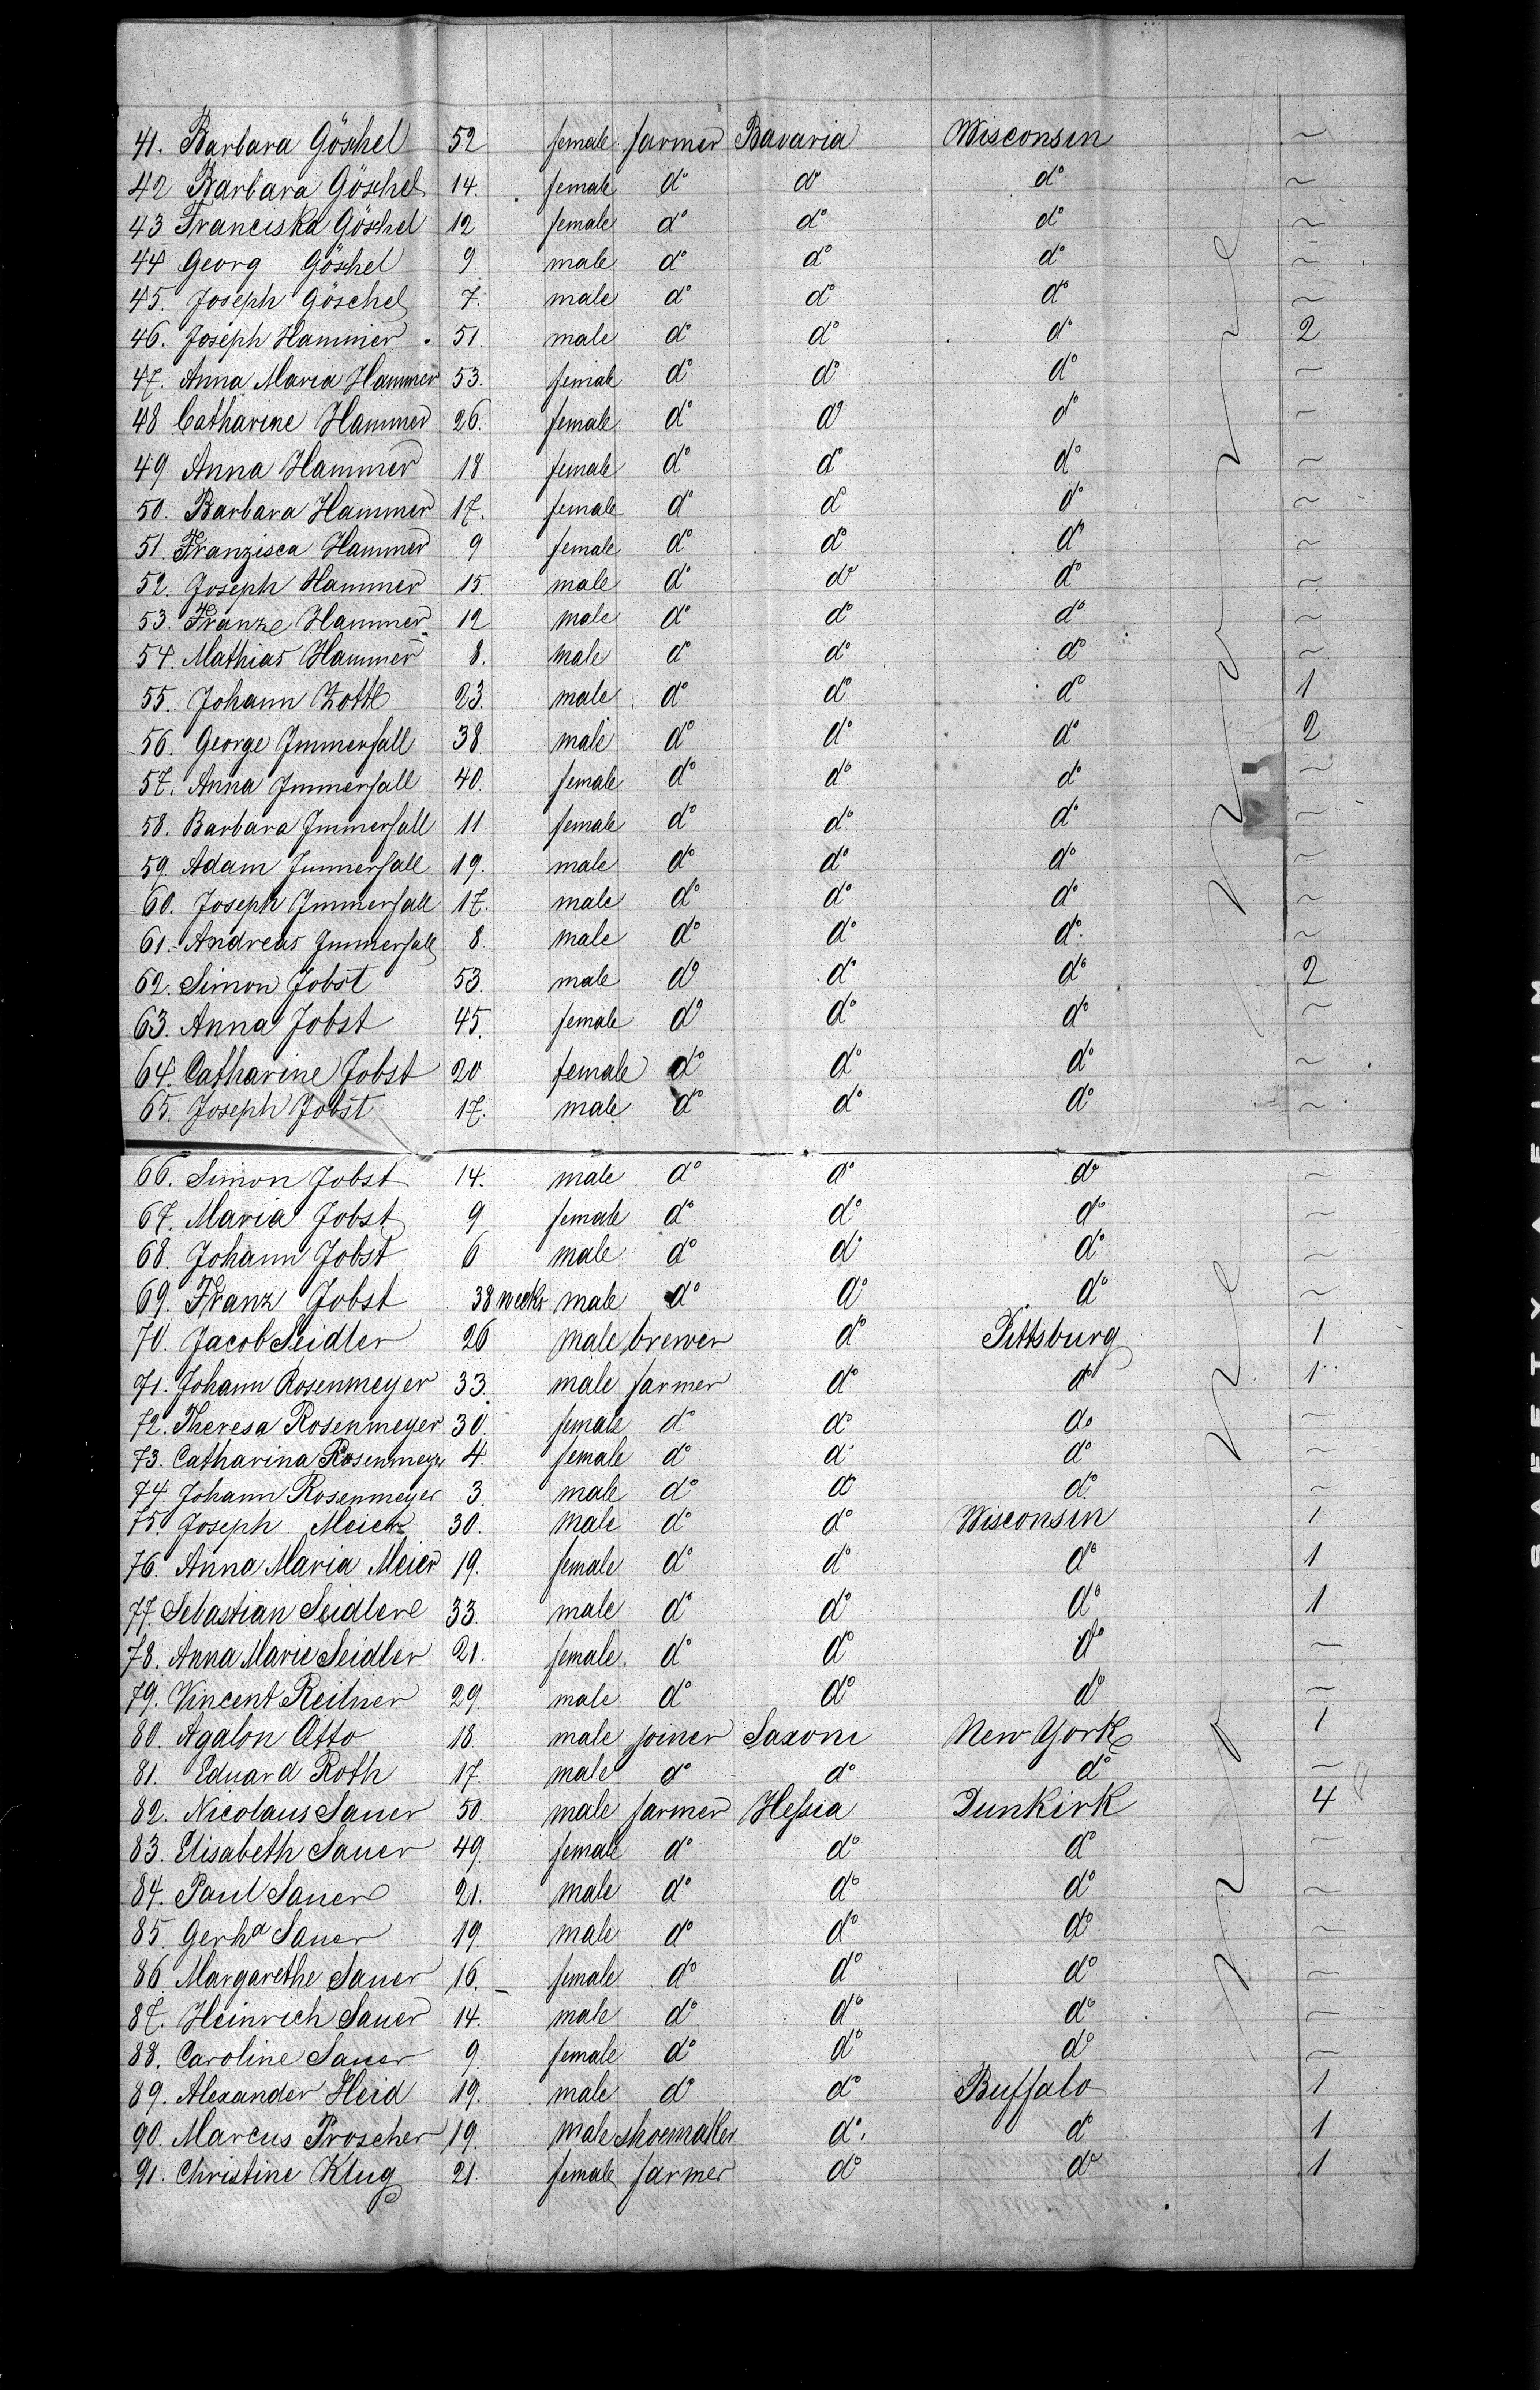 41. Barbara Göschel 52 female farmer Bavaria Wisconsin ~
42 Barbara Göschel 14. female do do do ~
43 Franciska Göschel 12 female do do do ~
44 Georg Göschel 9. male do do do ~
45. Joseph Göschel 7. male do do do ~
46. Joseph Hammer 51. male do do do 2
47. Anna Maria Hammer 53. female do do do ~
48 Catharine Hammer 26. female do do do ~
49 Anna Hammer 18 female do do do ~
50. Barbara Hammer 17. female do do do ~
51. Franzisca Hammer 9 female do do do ~
52. Joseph Hammer 15. male do do do ~
53. Franze Hammer 12 male do do do ~
54. Mathias Hammer 8. male do do do ~
55. Johann Zottl 23. male do do do 1
56. George Immerfall 38. male do do do 2
57. Anna Immerfall 40. female do do do ~
58. Barbara Immerfall 11. female do do do ~
59. Adam Immerfall 19. male do do do ~
60. Joseph Immerfall 17. male do do do ~
61. Andreas Immerfall 8. male do do do ~
62. Simon Jobst 53. male do do do 2
63. Anna Jobst 45. female do do do ~
64. Catharine Jobst 20 female do do do ~
65. Joseph Jobst 17. male do do do ~
66. Simon Jobst 14. male do do do ~
67. Maria Jobst 9 female do do do ~
68. Johann Jobst 6 male do do do ~
69. Franz Jobst 38 weeks male do do do ~
70. Jacob Seidler 26 male brewer do Pittsburg 1
71. Johann Rosenmeyer 33. male farmer do do 1
72. Theresa Rosenmeyer 30. female do do do ~
73. Catharina Rosenmeyer 4. female do do do ~
74. Johann Rosenmeyer 3. male do do do ~
75. Joseph Meier 30. male do do Wisconsin 1
76. Anna Maria Meier 19. female do do do 1
77. Sebastian Seidlere 33. male do do do 1
78. Anna Marie Seidler 21. female do do do ~
79. Vincent Reitner 29. male do do do ~
80. Agalon Otto 18. male joiner Saxoni New York 1
81. Eduard Roth 17. male do do do ~
82. Nicolaus Sauer 50. male farmer Hessia Dunkirk 4
83. Elisabeth Sauer 49. female do do do ~
84. Paul Sauer 21. male do do do ~
85. Gerhd Sauer 19. male do do do ~
86 Margarethe Sauer 16. female do do do ~
87. Heinrich Sauer 14. male do do do ~
88. Caroline Sauer 9. female do do do ~
89. Alexander Heid 19. male do do Buffalo 1
90. Marcus Proscher 19. male shoemaker do do 1
91. Christine Klug 21. female farmer do do 1